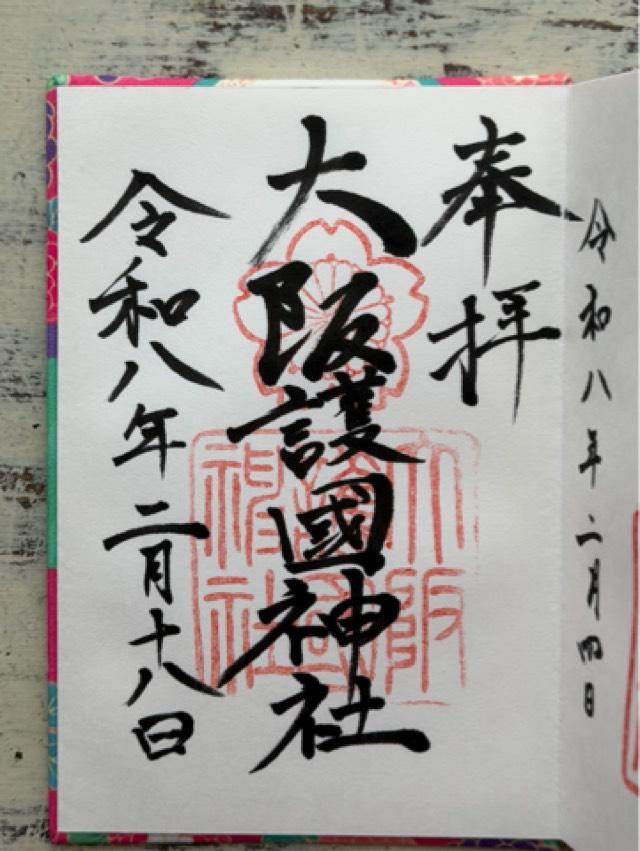 令和八年二月四日
奉拝
大阪護國神社
令和八年二月十八日
大阪護國神社